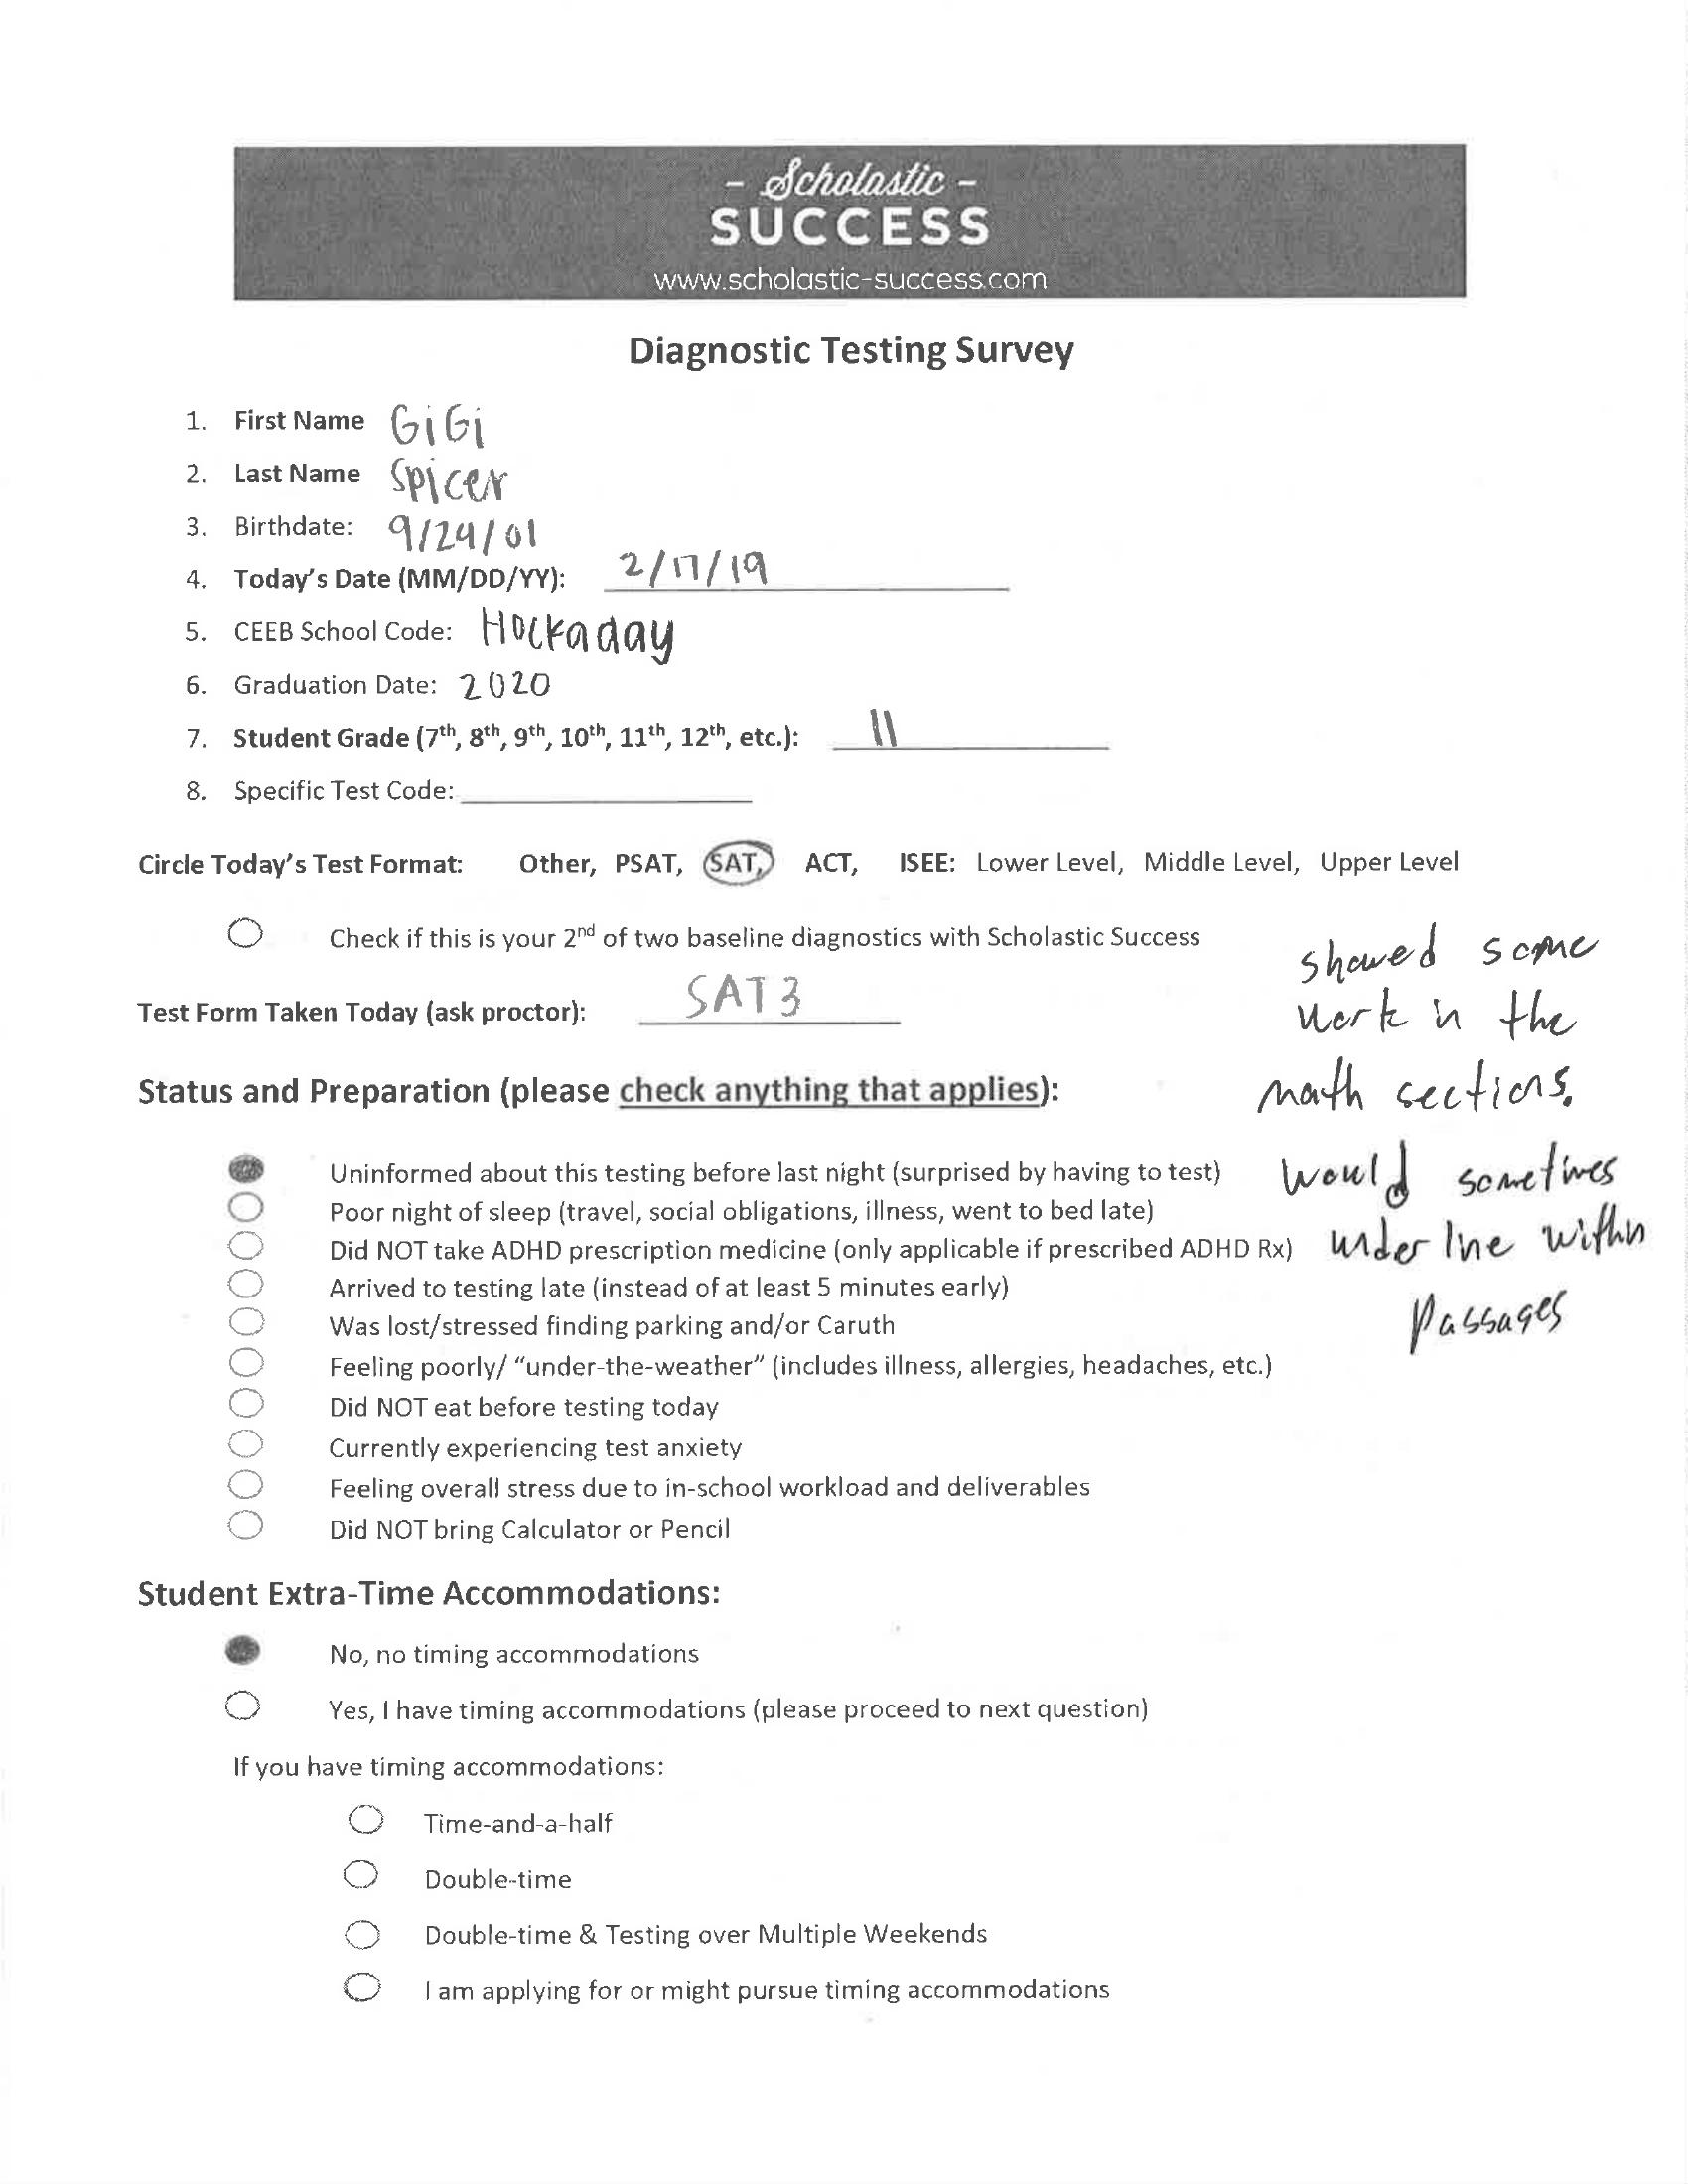 - Scholastic -
SUCCESS
www.scholastic-success.com
Diagnostic Testing Survey
1. First Name GiGi
2. Last Name Spicer
3. Birthdate: 9/24/01
4. Today's Date (MM/DD/YY): 2/17/19
5. CEEB School Code: Hockaday
6. Graduation Date: 2020
7. Student Grade (7th, 8th, 9th, 10th, 11th, 12th, etc.): 11
8. Specific Test Code:
Circle Today's Test Format: Other, PSAT, SAT, ACT, ISEE: Lower Level, Middle Level, Upper Level
Check if this is your 2nd of two baseline diagnostics with Scholastic Success
Test Form Taken Today (ask proctor): SAT 3
showed some
work in the
math sections.
would sometimes
underline within
passages
Status and Preparation (please check anything that applies):
Uninformed about this testing before last night (surprised by having to test)
Poor night of sleep (travel, social obligations, illness, went to bed late)
Did NOT take ADHD prescription medicine (only applicable if prescribed ADHD Rx)
Arrived to testing late (instead of at least 5 minutes early)
Was lost/stressed finding parking and/or Caruth
Feeling poorly/ "under-the-weather" (includes illness, allergies, headaches, etc.)
Did NOT eat before testing today
Currently experiencing test anxiety
Feeling overall stress due to in-school workload and deliverables
Did NOT bring Calculator or Pencil
Student Extra-Time Accommodations:
No, no timing accommodations
Yes, I have timing accommodations (please proceed to next question)
If you have timing accommodations:
Time-and-a-half
Double-time
Double-time & Testing over Multiple Weekends
I am applying for or might pursue timing accommodations